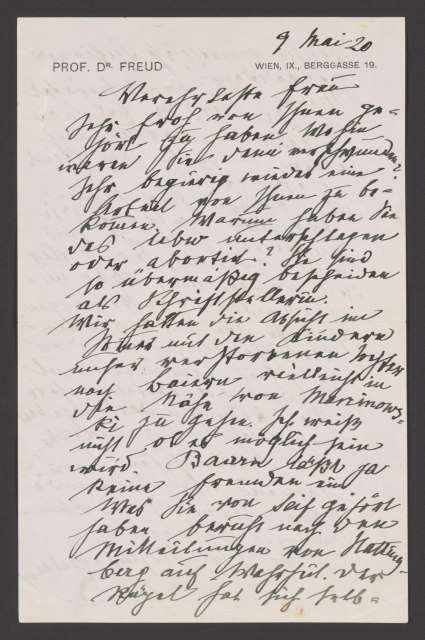 9 Mai 20
PROF. DR. FREUD WIEN, IX., BERGGASSE 19.
Verehrteste Frau
Sehr froh von Ihnen ge-
hört zu haben. Wohin
waren Sie denn verschwunden?
Sehr begierig wieder eine
Arbeit von Ihnen zu be-
komen. Warum haben Sie
das unterschlagen
oder abortiert? Sie sind
so übermäßig bescheiden
als Schriftstellerin.
Wir hatten die Absicht im
Somer mit den Kindern
unser verstorbenen Tochter
nach Baiern vielleicht in
die Nähe von Marcinows-
ki zu gehen. Ich weiß
nicht ob es möglich sein
wird. Baiern läßt ja
keine Fremden ein
Was Sie von gehört
haben beruht nach den
Mitteilungen von Hatting-
berg auf Wahrheit. Der
hat sich selb-